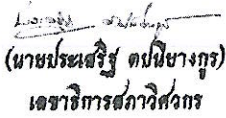 (นายประเสริฐ ตปนียางกูร)
เลขาธิการสภาวิศวกร